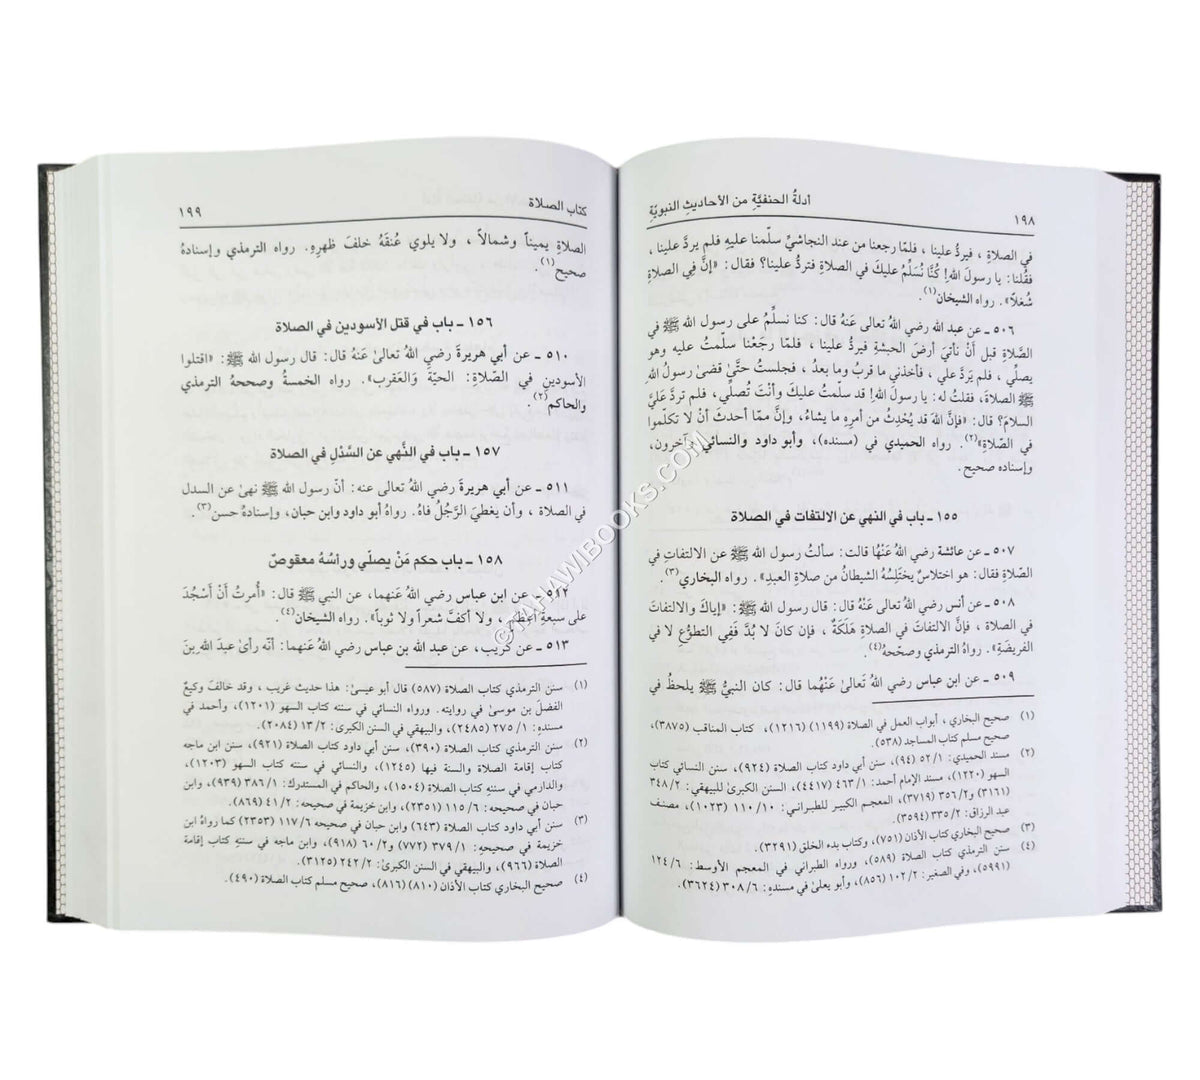 ١٩٨
أدلةُ الحنفيَّةِ من الأحاديثِ النبويّةِ
في الصلاةِ ، فيردُّ علينا ، فلمّا رجعنا من عند النجاشيِّ سلّمنا عليهِ فلم يردَّ علينا ،
فقُلنا: يا رسولَ الله! كُنَّا نُسَلِّمُ عليكَ في الصلاةِ فتردُّ علينا؟ فقال: «إنَّ فِي الصلاةِ
شُغلاً». رواه الشيخان(١).
٥٠٦ ـ عن عبد الله رضي اللهُ تعالى عَنهُ قال: كنا نسلِّمُ على رسول الله ﷺ في
الصَّلاةِ قبل أَنْ نأتيَ أرضَ الحبشةِ فيردُّ علينا ، فلمّا رجَعْنا سلّمتُ عليه وهو
يصلِّي ، فلم يَردَّ علي ، فأخذني ما قربُ وما بعدُ ، فجلستُ حتَّىٰ قضىٰ رسولُ اللهِ
ﷺ الصلاةَ، فقلتُ له: يا رسولَ الله! قد سلّمتُ عليكَ وأنْتَ تُصلِّي، فلم تردَّ عَليَّ
السلامَ؟ قال: «فإنَّ اللهَ قد يُحْدِثُ من أمرِهِ ما يشاءُ، وإنَّ ممّا أحدثَ أنْ لا تكلّموا
في الصّلاةِ»(٢). رواه الحميدي في (مسنده)، وأبو داود والنسائي وآخرون،
وإسناده صحيح.
١٥٥ ـ باب في النهي عن الالتفات في الصلاة
٥٠٧ ـ عن عائشة رضي اللهُ عَنْهُا قالت: سألتُ رسولَ الله ﷺ عن الالتفاتِ في
الصّلاةِ فقال: هو اختلاسٌ يختَلِسُهُ الشيطانُ من صلاةِ العبدِ». رواه البخاري(٣).
٥٠٨ ـ عن أنس رضي اللهُ تعالى عَنْهُ قال: قال رسولُ الله ﷺ: «إياكَ والالتفاتَ
في الصلاة ، فإنَّ الالتفاتَ في الصلاةِ هَلَكَةٌ ، فإن كانَ لا بُدَّ فَفِي التطوُّعِ لا في
الفريضَةِ». رواهُ الترمذي وصحّحهُ(٤).
٥٠٩ ـ عن ابن عباس رضي اللهُ تَعالىٰ عَنْهُما قال: كان النبيُّ ﷺ يلحظُ في
(١) صحيح البخاري، أبواب العمل في الصلاة (١١٩٩) (١٢١٦)، كتاب المناقب (٣٨٧٥)،
صحيح مسلم كتاب المساجد (٥٣٨).
(٢) مسند الحميدي: ٥٢/١ (٩٤)، سنن أبي داود كتاب الصلاة (٩٢٤)، سنن النسائي كتاب
السهو (١٢٢٠)، مسند الإمام أحمد: ٤٦٣/١ (٤٤١٧)، السنن الكبرىٰ للبيهقي: ٣٤٨/٢
(٣١٦١) و٣٥٦/٢ (٣٧١٩)، المعجم الكبير للطبراني: ١١٠/١٠ (١٠٢٣)، مصنف
عبد الرزاق: ٣٣٥/٢ (٣٥٩٤).
(٣) صحيح البخاري كتاب الأذان (٧٥١)، وكتاب بدء الخلق (٣٢٩١).
(٤) سنن الترمذي كتاب الصلاة (٥٨٩)، ورواه الطبراني في المعجم الأوسط: ١٢٤/٦
(٥٩٩١)، وفي الصغير: ١٠٢/٢ (٨٥٦)، وأبو يعلىٰ في مسندِهِ: ٣٠٨/٦ (٣٦٢٤).
كتاب الصلاة
١٩٩
الصلاةِ يميناً وشمالاً ، ولا يلوي عُنقَهُ خلفَ ظهرِهِ. رواه الترمذي وإسنادهُ
صحيح(١).
١٥٦ ـ باب في قتل الأسودين في الصلاة
٥١٠ ـ عن أبي هريرةَ رضي اللهُ تعالىٰ عَنهُ قال: قال رسول الله ﷺ: «اقتلوا
الأسودينِ في الصّلاةِ: الحيّةَ وَالعَقرب». رواه الخمسةُ وصححهُ الترمذي
والحاكم(٢)
١٥٧ ـ باب في النَّهي عن السَّدْلِ في الصلاة
٥١١ ـ عن أبي هريرة رضي اللهُ تعالى عنه: أنّ رسولَ الله ﷺ نهىٰ عن السدل
في الصلاة ، وأن يغطيَ الرَّجُلُ فاهُ. رواهُ أبو داود وابن حبان، وإسنادهُ حسن(٣).
١٥٨ ـ باب حكم مَنْ يصلّي ورأسُهُ معقوصٌ
٥١٢ ـ عن ابن عباس رضي اللهُ عَنهما، عن النبي ﷺ قال: «أُمرتُ أنْ أَسْجُدَ
على سبعةِ أعظُمٍ ، ولا أكفَّ شعراً ولا ثوباً». رواه الشيخان(٤).
٥١٣ ـ عن كُريب، عن عبد الله بن عباس رضي اللهُ عَنهما: أنّه رأىٰ عبدَ الله بنَ
(١) سنن الترمذي كتاب الصلاة (٥٨٧) قال أبو عيسىٰ: هذا حديث غريب ، وقد خالفَ وكيعٌ
الفضلَ بن موسىٰ في روايته. ورواه النسائي في سننه كتاب السهو (١٢٠١)، وأحمد في
مسندهِ: ٢٧٥/١ (٢٤٨٥)، والبيهقي في السنن الكبرىٰ: ١٣/٢ (٢٠٨٤).
(٢) سنن الترمذي كتاب الصلاة (٣٩٠)، سنن أبي داود كتاب الصلاة (٩٢١)، سنن ابن ماجه
كتاب إقامة الصلاة والسنة فيها (١٢٤٥)، والنسائي في سننه كتاب السهو (١٢٠٣)،
والدارمي في سننهِ كتاب الصلاة (١٥٠٤)، والحاكم في المستدرك: ٣٨٦/١ (٩٣٩)، وابن
حبان في صحيحهِ: ١١٥/٦ (٢٣٥١)، وابن خزيمة في صحيحه: ٤١/٢ (٨٦٩).
(٣) سنن أبي داود كتاب الصلاة (٦٤٣) وابن حبان في صحيحه ١١٧/٦ (٢٣٥٣) كما رواهُ ابن
خزيمة في صحيحهِ: ٣٧٩/١ (٧٧٢) و٦٠/٢ (٩١٨)، وابن ماجه في سننهِ كتاب إقامة
الصلاة (٩٦٦)، والبيهقي في السنن الكبرىٰ: ٢٤٢/٢ (٣١٢٥).
(٤) صحيح البخاري كتاب الأذان (٨١٠) (٨١٦)، صحيح مسلم كتاب الصلاة (٤٩٠).
© TAHAWIBOOKS.COM